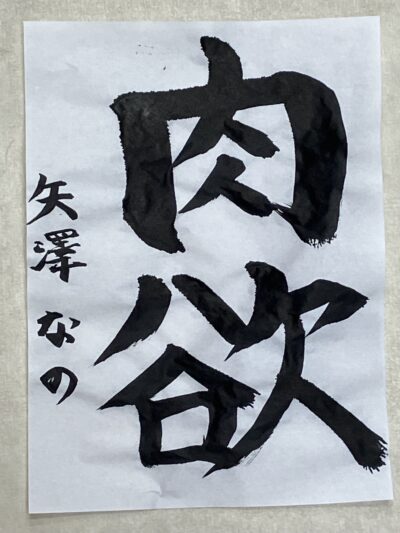 肉欲
矢澤なの